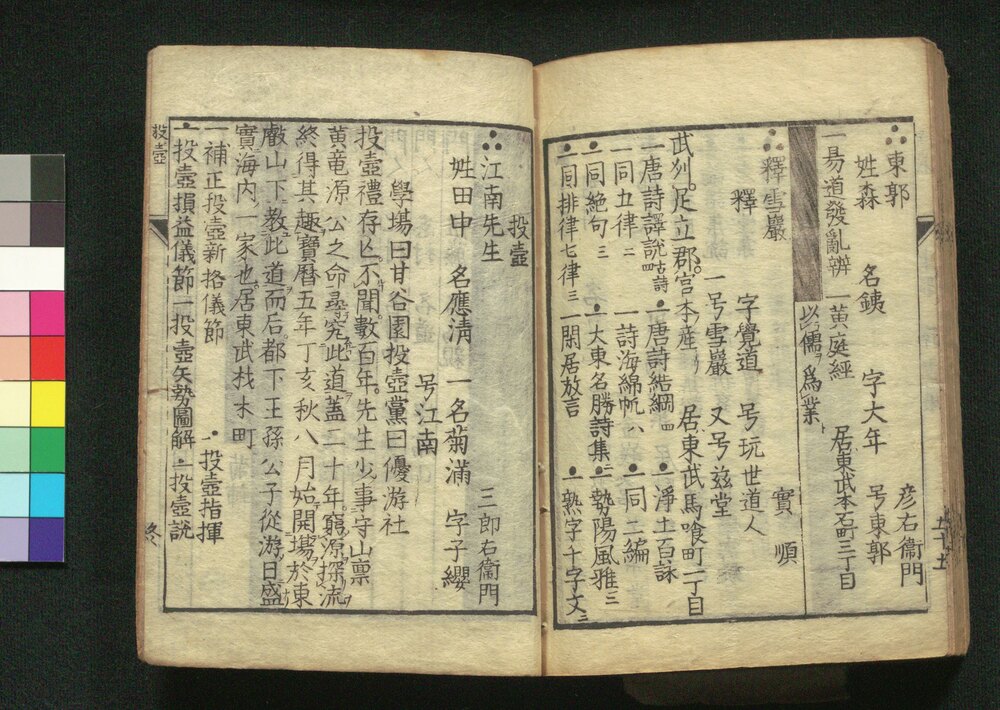 東郭 彦右衞門
姓森 名銕 字大年 号東郭
一易道發亂辨 一黄庭經 居東武本石町三丁目
以儒為業
釋雪巖 實順
釋 字覺道 号玩世道人
一号雪巖 又号玆堂
武刕足立郡宮本産 居東武馬喰町二丁目
一唐詩譯説 唐詩結綱四 淨土百詠
一同五律二 一詩海綿帆八 一同二編
同絶句三 大東名勝詩集二 勢陽風雅三
一同排律七律三 一閑居放言 熟字千字文三
投壺
江南先生 三郎右衞門
姓田中 名應清 一名菊滿 字子纓
号江南
學塲曰甘谷園投壺黨曰優游社
投壺禮存亾不聞數百年先生少事守山禀
黄竜源公之命尋究此道蓋二十年窮源探流
終得其趣寶暦五年丁亥秋八月始開塲於東
叡山下教此道而后都下王孫公子從游日盛
實海内一家也居東武材木町
一補正投壺新格儀節 投壺指揮
一投壺損益儀節 一投壺矢勢圖解 投壺説
投壺
終